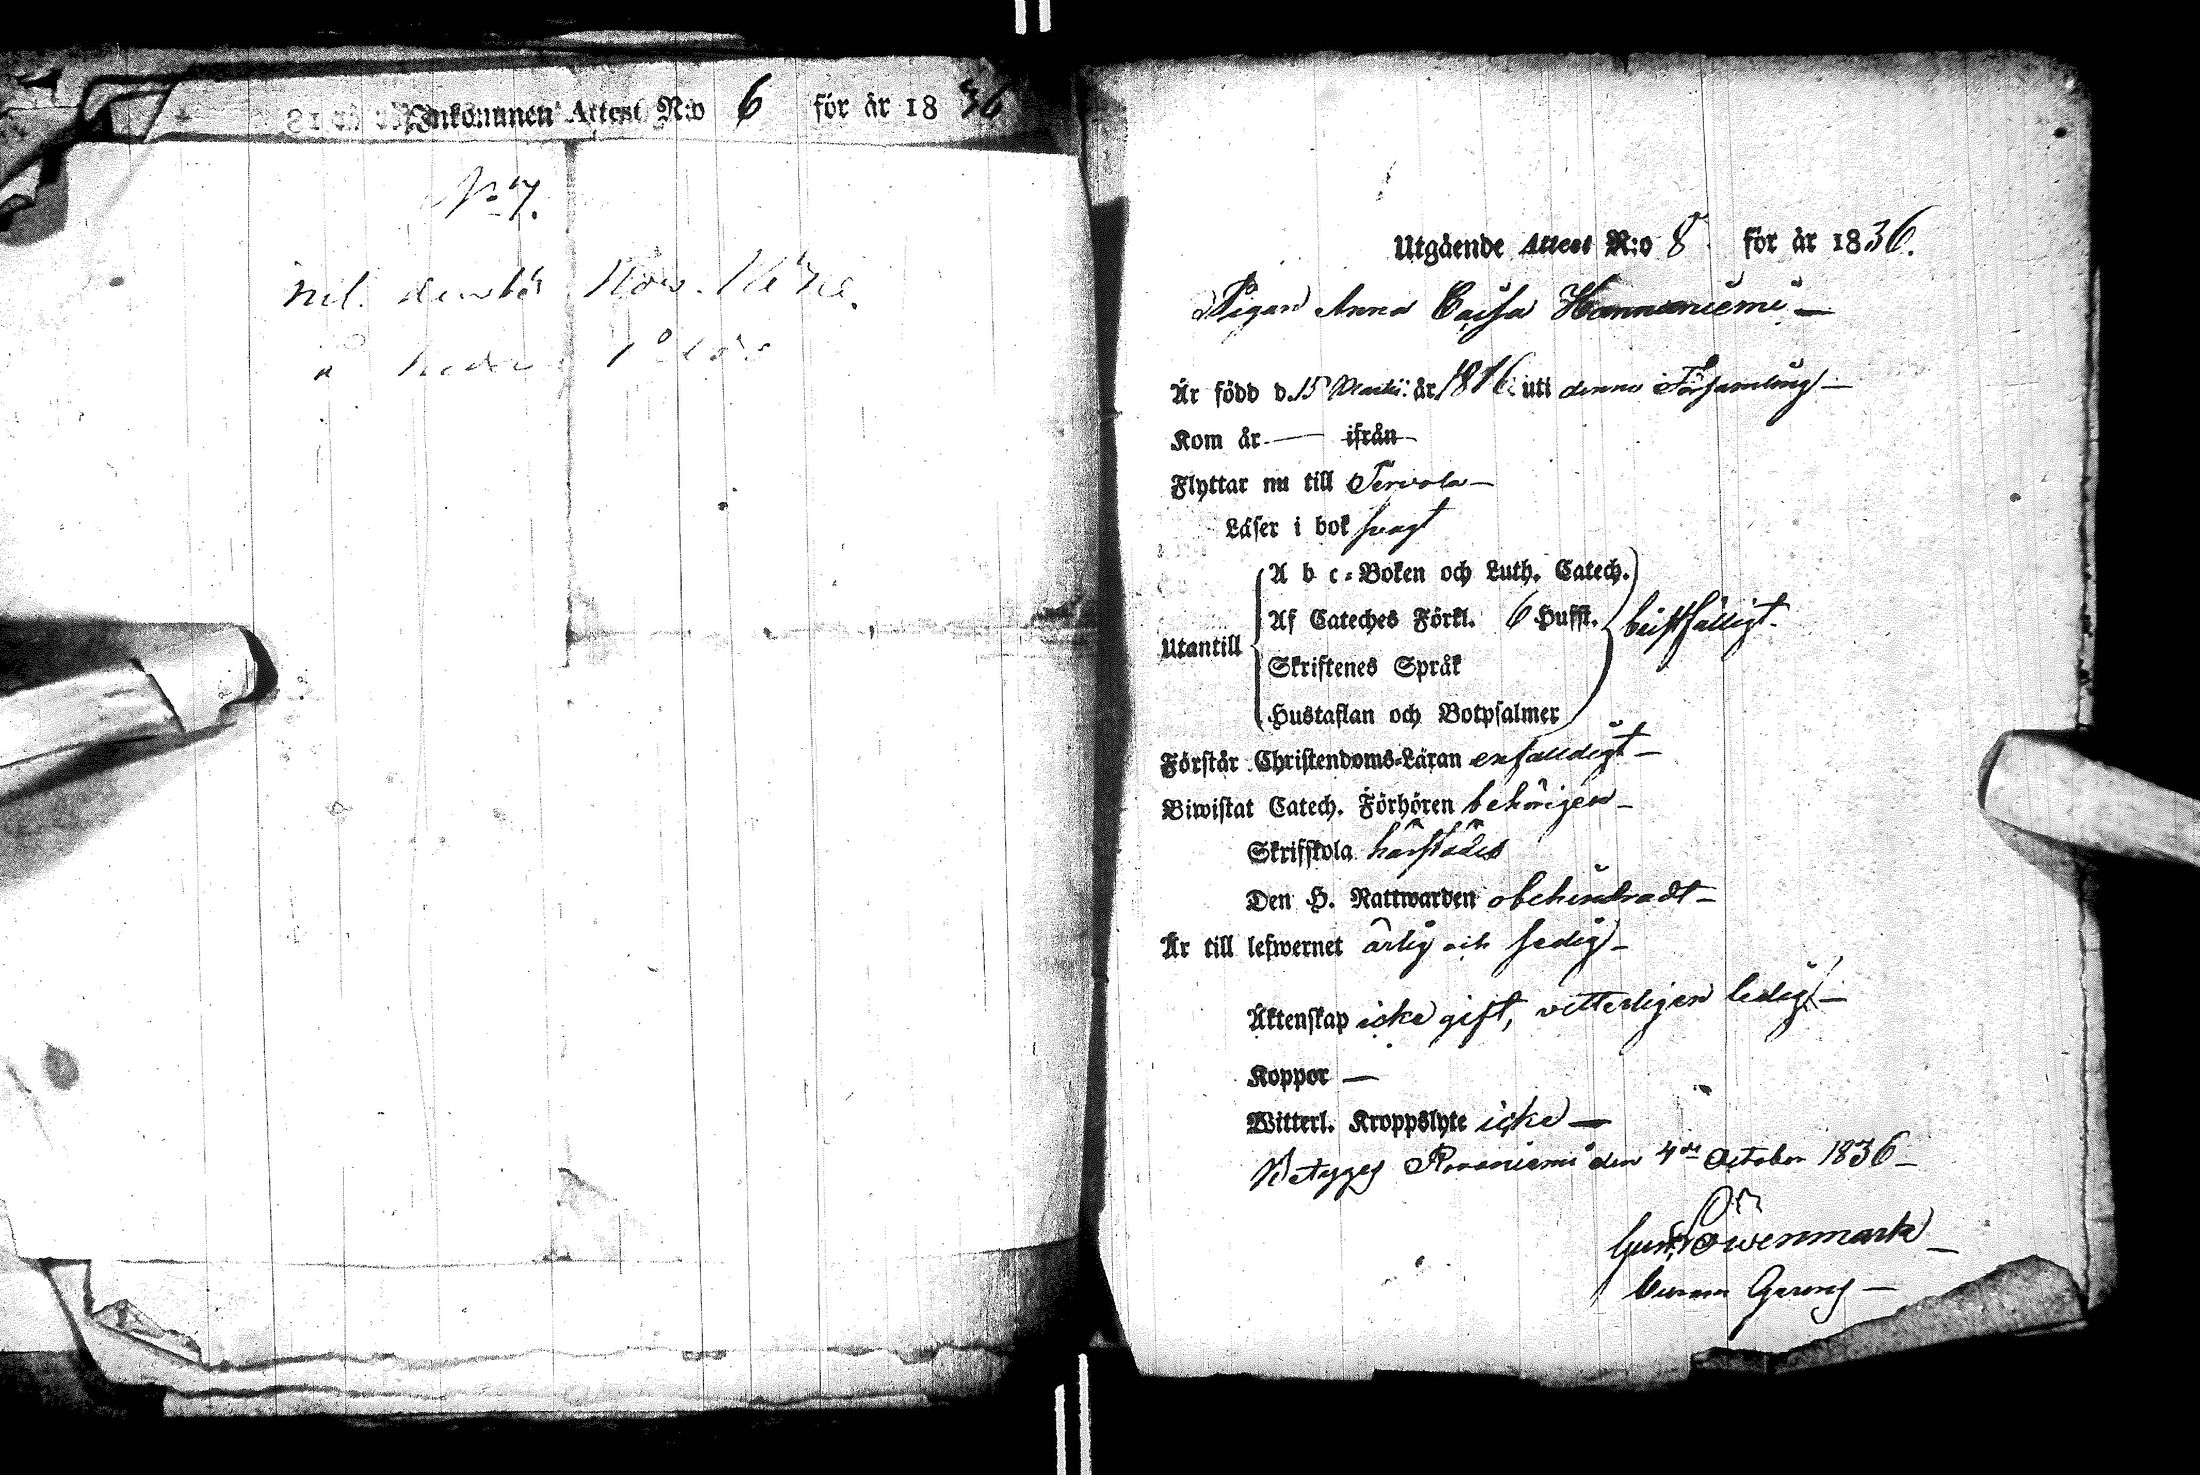 Inkommen Attest N:o 6 för år 1836
No 7.
Utgående Attest N:o 8. för år 1836.
Pigan Anna Caisa Hannuniemi —
Är född d. 15 Martii: år 1816 uti denna Församling —
Kom år — ifrån —
Flyttar nu till Tervola —
Läser i bok svagt
A b c-Boken och Luth. Catech.
Af Cateches Förkl. 6 Hufst.
Utantill
bristfälligt.
Skriftenes Språk
Hustaflan och Botpsalmer
Förstår Christendoms-Läran enfaldigt —
Biwistat Catech. Förhören behörigen —
Skrifskola härstädes
Den H. Nattwarden obehindradt —
Är till lefwernet ärlig och sedig —
Äktenskap icke gift, vitterligen ledig —
Koppor —
Witterl. Kroppslyte icke —
Betygges Rovaniemi den 4de October 1836 —
Löwenmark —